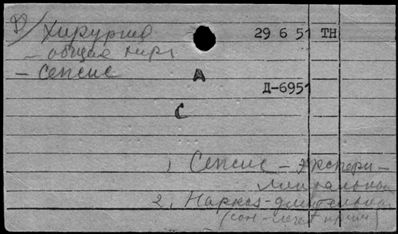 Хирургия 29 6 51 ТН
— общая хир
— Сепсис А
Д-6951
С
1. Сепсис — экспери-
ментальный
2. Наркоз - длительный
(сон-